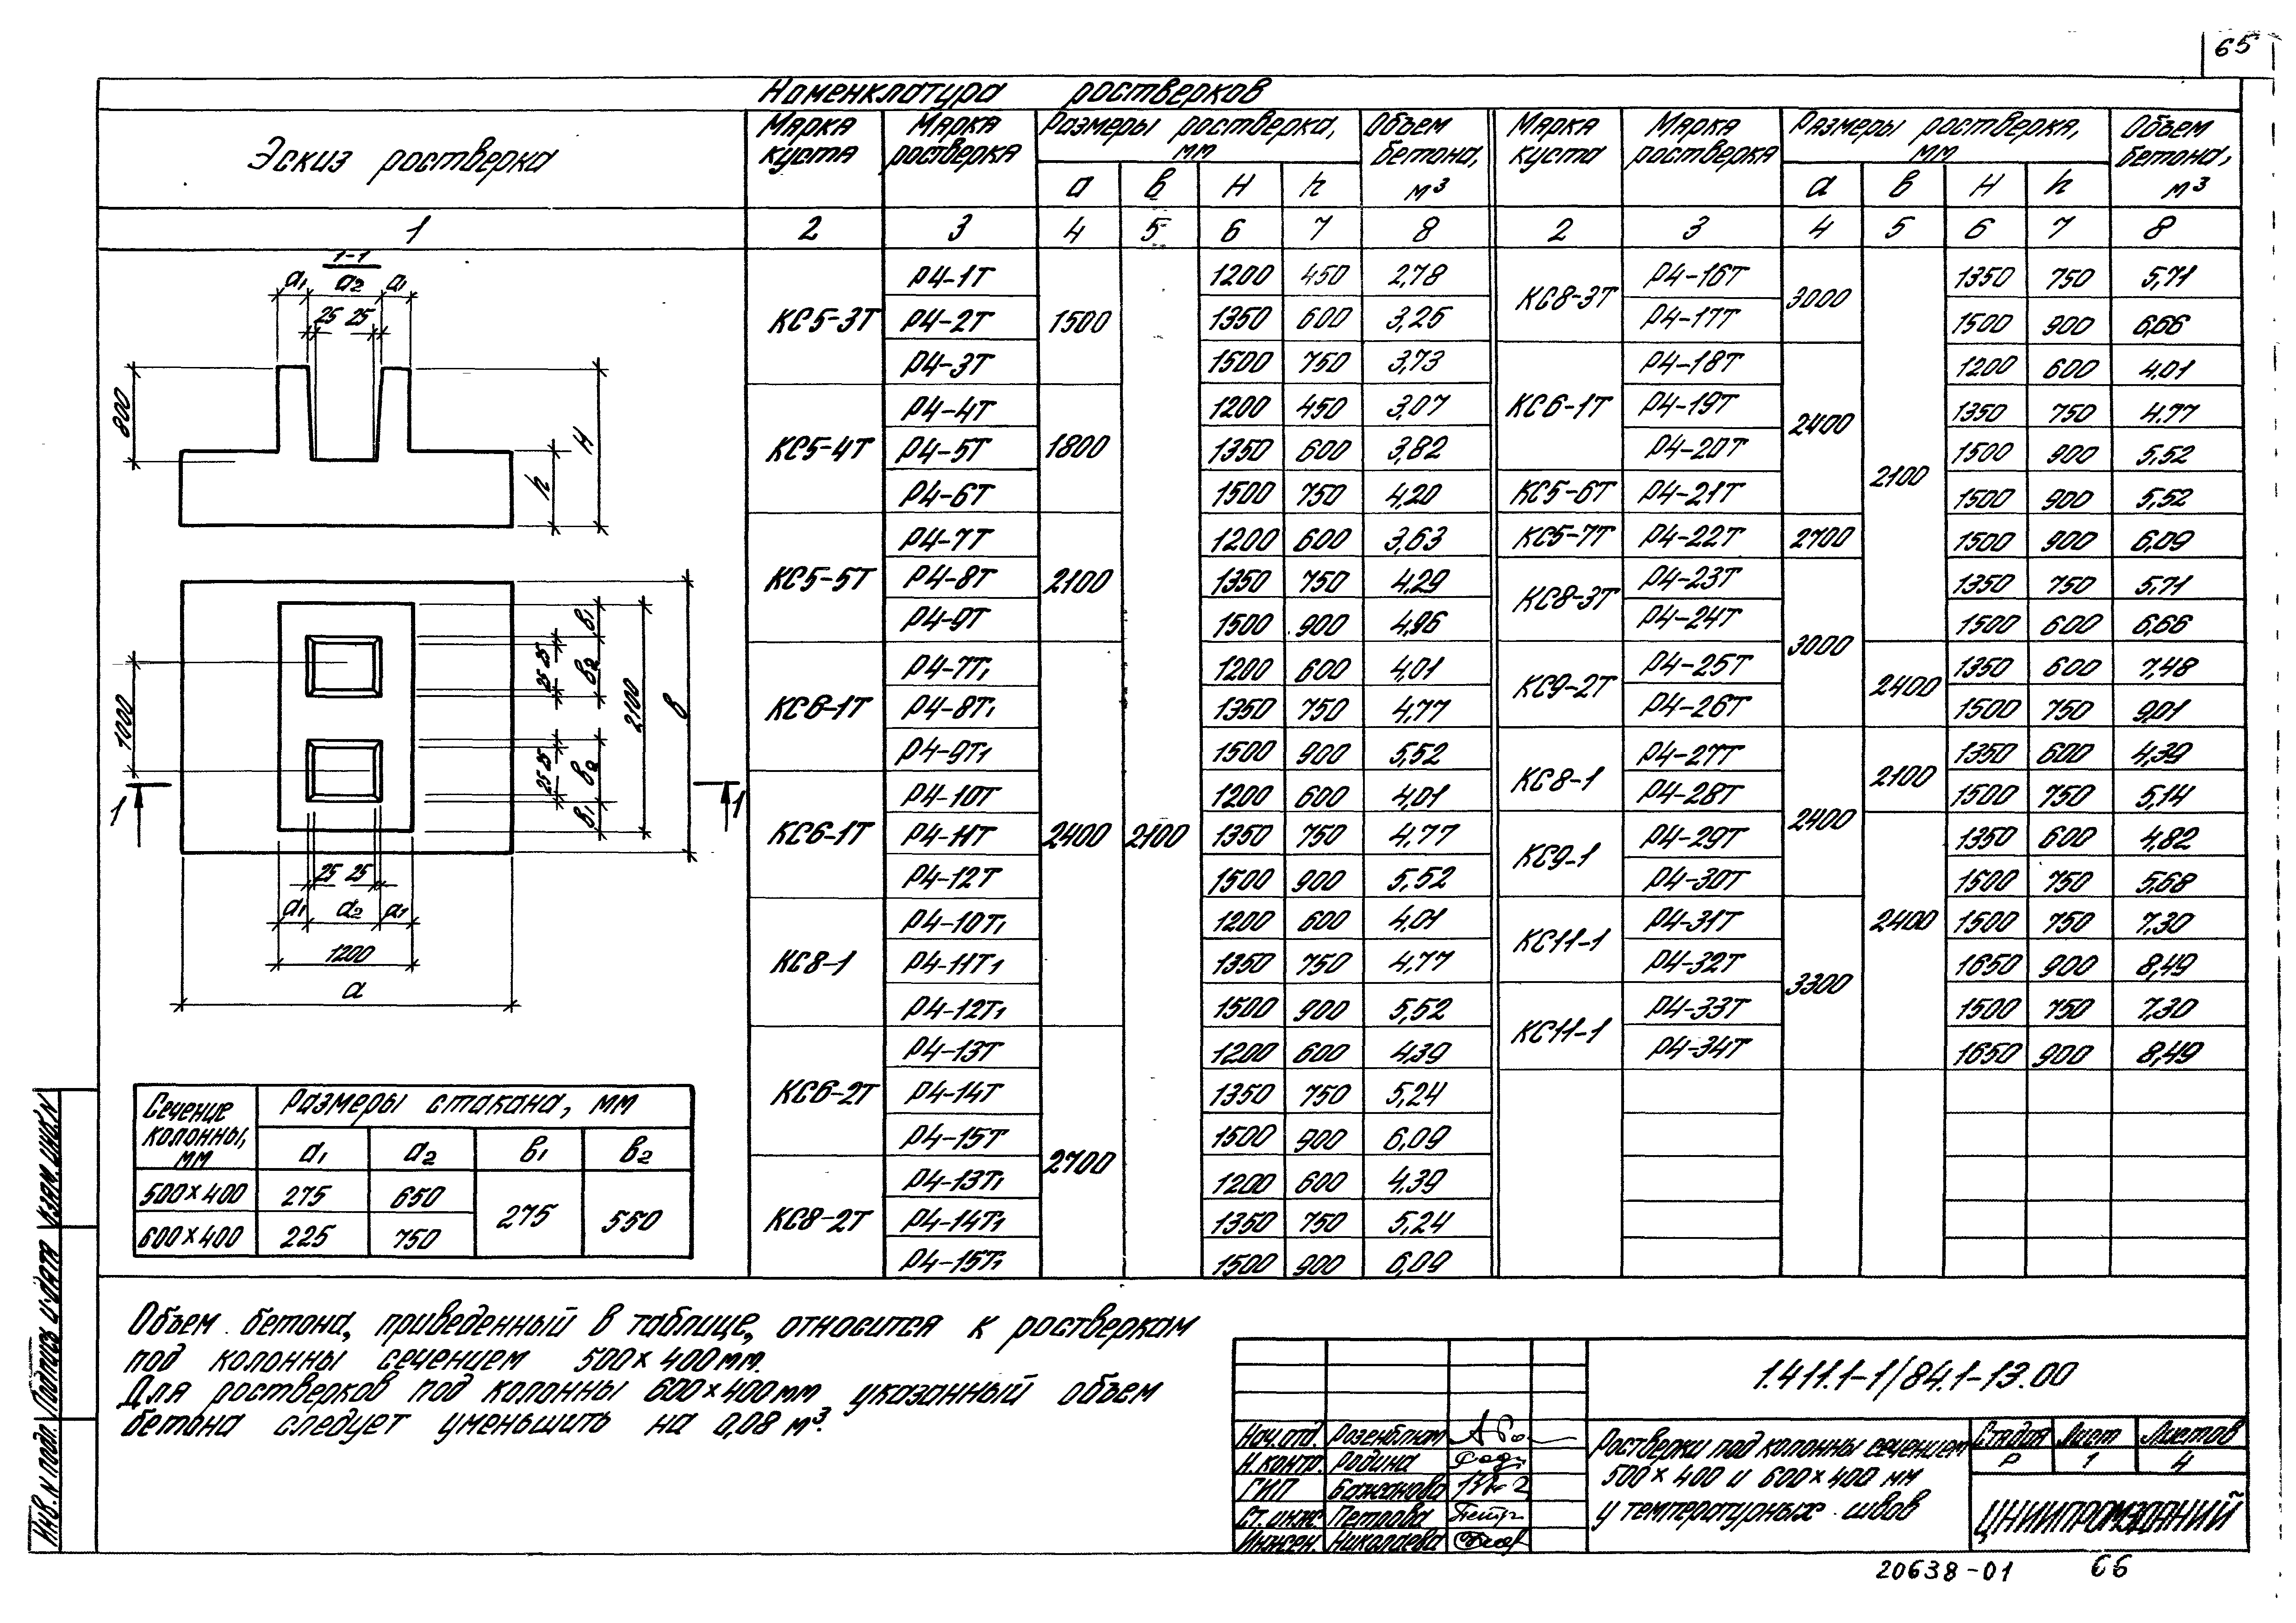 65
Номенклатура ростверков
Эскиз ростверка
Марка куста
Марка ростверка
Размеры ростверка, мм
Объем бетона, м³
Марка куста
Марка ростверка
Размеры ростверка, мм
Объем бетона, м³
а в H h а в H h
1 2 3 4 5 6 7 8 2 3 4 5 6 7 8
1-1
а₁ а₂ а₁
25 25
800
H
h
1000
25 25
25 25
в₁
в₂
в₂
в₁
2100
в
1 1
25 25
а₁ а₂ а₁
1200
а
КС5-3Т Р4-1Т 1500 2100 1200 450 2,78
Р4-2Т 1350 600 3,25
Р4-3Т 1500 750 3,73
КС5-4Т Р4-4Т 1800 1200 450 3,07
Р4-5Т 1350 600 3,82
Р4-6Т 1500 750 4,20
КС5-5Т Р4-7Т 2100 1200 600 3,63
Р4-8Т 1350 750 4,29
Р4-9Т 1500 900 4,96
КС6-1Т Р4-7Т₁ 2400 1200 600 4,01
Р4-8Т₁ 1350 750 4,77
Р4-9Т₁ 1500 900 5,52
КС6-1Т Р4-10Т 1200 600 4,01
Р4-11Т 1350 750 4,77
Р4-12Т 1500 900 5,52
КС8-1 Р4-10Т₁ 1200 600 4,01
Р4-11Т₁ 1350 750 4,77
Р4-12Т₁ 1500 900 5,52
КС6-2Т Р4-13Т 2700 1200 600 4,39
Р4-14Т 1350 750 5,24
Р4-15Т 1500 900 6,09
КС8-2Т Р4-13Т₁ 1200 600 4,39
Р4-14Т₁ 1350 750 5,24
Р4-15Т₁ 1500 900 6,09
КС8-3Т Р4-16Т 3000 2100 1350 750 5,71
Р4-17Т 1500 900 6,66
КС6-1Т Р4-18Т 2400 1200 600 4,01
Р4-19Т 1350 750 4,77
Р4-20Т 1500 900 5,52
КС5-6Т Р4-21Т 1500 900 5,52
КС5-7Т Р4-22Т 2700 1500 900 6,09
КС8-3Т Р4-23Т 3000 1350 750 5,71
Р4-24Т 1500 600 6,66
КС9-2Т Р4-25Т 2400 1350 600 7,48
Р4-26Т 1500 750 9,01
КС8-1 Р4-27Т 2400 2100 1350 600 4,39
Р4-28Т 1500 750 5,14
КС9-1 Р4-29Т 2400 1350 600 4,82
Р4-30Т 1500 750 5,68
КС11-1 Р4-31Т 3300 1500 750 7,30
Р4-32Т 1650 900 8,49
КС11-1 Р4-33Т 1500 750 7,30
Р4-34Т 1650 900 8,49
Сечение колонны, мм
Размеры стакана, мм
а₁ а₂ в₁ в₂
500×400 275 650 275 550
600×400 225 750
Объем бетона, приведенный в таблице, относится к ростверкам
под колонны сечением 500×400 мм.
Для ростверков под колонны 600×400 мм указанный объем
бетона следует уменьшить на 0,08 м³.
Инв. N подл. Подпись и дата Взам. инв. N
1.411.1-1/84.1-13.00
Нач. отд. Розенблюм
Н. контр. Родина
ГИП Бажанова
Ст. инж. Петрова
Инжен. Николаева
Ростверки под колонны сечением
500×400 и 600×400 мм
у температурных швов
Стадия Лист Листов
Р 1 4
ЦНИИПРОМЗДАНИЙ
20638-01 66